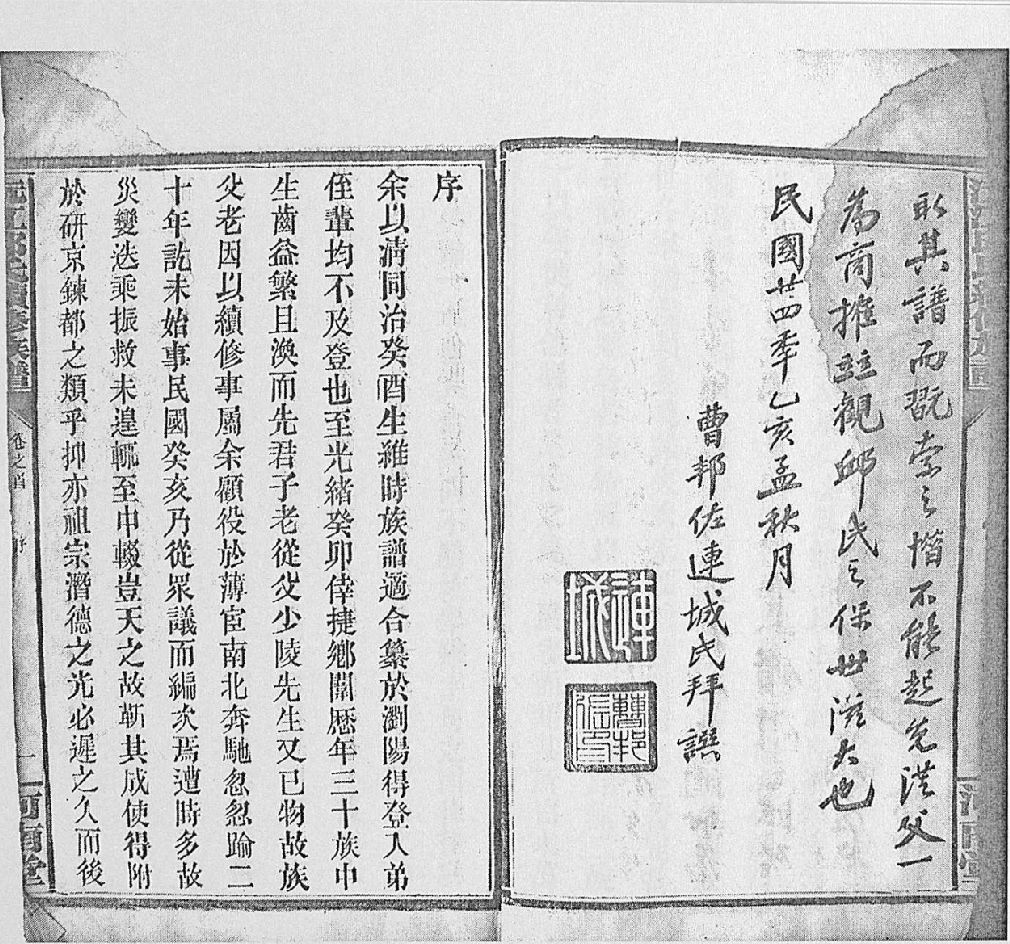 取其譜而翫索之惜不能起先漢父一
為商推竝觀邱氏之保世滋大也
民國廿四季乙亥孟秋月
曹邦佐連城氏拜譔
連城
序
余以清同治癸酉生維時族譜適合纂於瀏陽得登入弟
侄輩均不及登也至光緒癸卯倖捷鄉闈歷年三十族中
生齒益繁且渙而先君子老從父少陵先生又已物故族
父老因以續修事屬余顧役於薄宦南北奔馳忽忽踰二
十年訖未始事民國癸亥乃從眾議而編次焉遭時多故
災變迭乘振救未遑輒至中輟豈天之故靳其成使得附
於研京鍊都之類乎抑亦祖宗潛德之光必遲之久而後
卷之首
序
一
河南堂